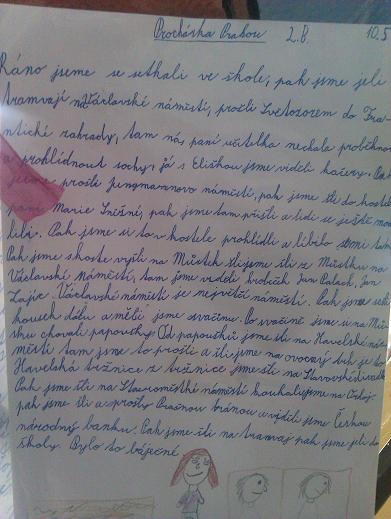 Procházka Prahou 2.B 10.5
Ráno jsme se setkali ve škole, pak jsme jeli
tramvají na Václavské náměstí, prošli Svetozorem do Fra-
ntické zahrady, tam nás paní učitelka nechala proběhnout
a prohlídnout sochy, já s Eliškou jsme viděli kačery. Pak
jsme prošli Jungmannovo náměstí, pak jsme šli do kostela
paní Marie Sněžné, pak jsme tam přišli a lidi se ještě mod
lili. Pak jsme si to v kostele prohlídli a líbilo se mi tam
Pak jsme skoste vyšli na Můstek šli jsme šli z Můstku na
Václavské náměstí, tam jsme viděli hrobeček Jan Palach, Jan
Zajíc. Václavské náměstí je největší náměstí. Pak jsme seli
kousek dálu a měli jsme svačinu. Po svačině jsme si na Můs
tku chovali papoušky. Od papoušků jsme šli na Havelské ná
městí tam jsme to prošli a šli jsme na ovocný trh je to
Havelská tržnice z tržnice jsme šli na Stavovské divadlo
Pak jsme šli na Staroměstské náměstí koukali jsme na Orloj
pak jsme šli a prošly Prašnou bránou a viděli jsme Českou
národný banku. Pak jsme šli na tramvaj pak jsme jeli do
školy. Bylo to báječné